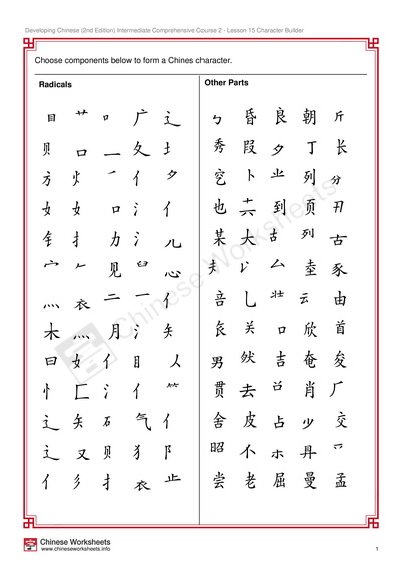 Developing Chinese (2nd Edition) Intermediate Comprehensive Course 2 - Lesson 15 Character Builder
Choose components below to form a Chines character.
Radicals
Other Parts
目 艹 口 广 辶
贝 口 一 夂 土
方 火 亻 夕
女 女 口 氵 亻
钅 扌 力 氵 儿
宀 𠂉 见 心
灬 衣 二 一 亻
木 灬 月 氵 矢
日 女 亻 目 人
忄 匚 氵 亻 ⺮
辶 矢 石 气 亻
辶 又 贝 犭 阝
亻 彡 扌 衣 止
ㄅ 昏 良 朝 斤
秀 叚 夕 丁 长
穵 卜 列 分
也 到 页 丑
某 大 古 列 古
讠 厶 坴 豕
咅 乚 壮 云 由
关 口 欣 首
男 然 吉 奄 夋
贯 去 肖 厂
舍 皮 占 少 交
昭 不 冉
尝 老 屈 曼 孟
Chinese Worksheets
Chinese Worksheets
www.chineseworksheets.info
1